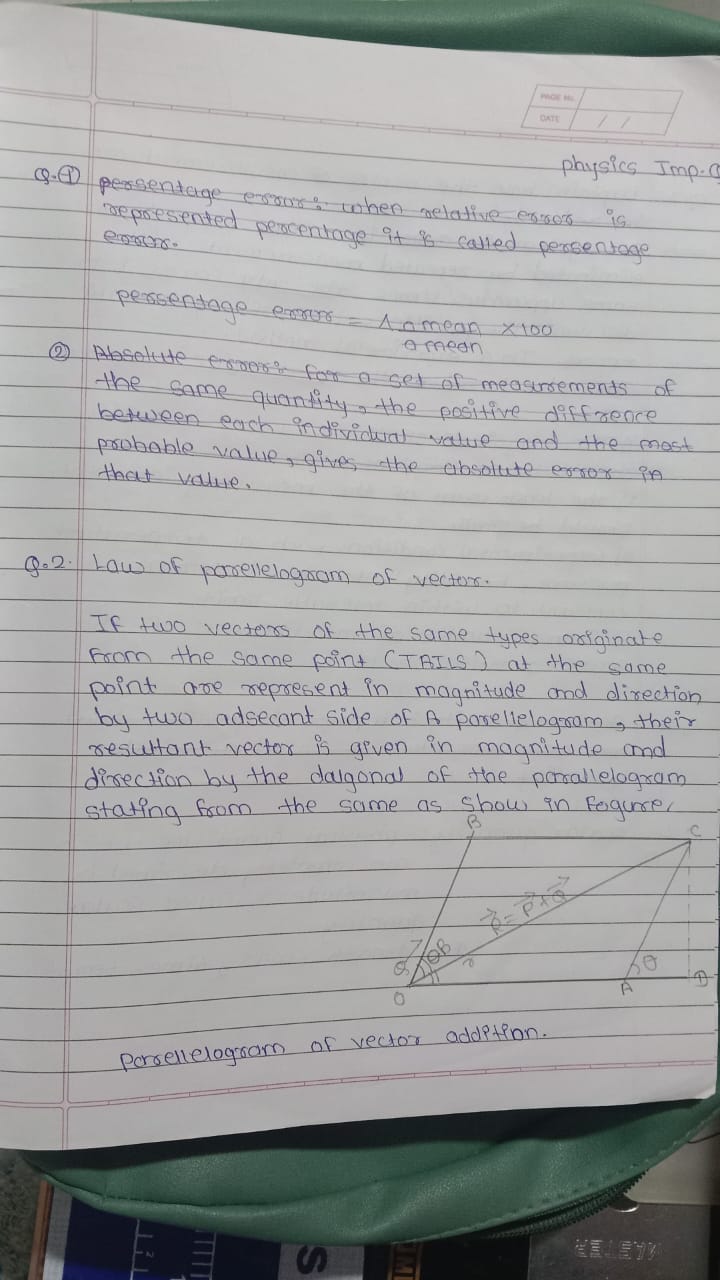 PAGE NO.
DATE / /
physics Imp. Q
Q.① persentage error : when relative error is
represented percentage it is called persentage
error.
persentage error = Δ a mean × 100
a mean
② Absolute error : for a set of measurements of
the same quantity, the positive diffrence
between each individual value and the most
probable value, gives the absolute error in
that value.
Q.2. Law of parellelogram of vector.
If two vectors of the same types originate
from the same point (TAILS) at the same
point are represent in magnitude and direction
by two adsecant side of A parellelogram, their
resultant vector is given in magnitude and
direction by the daigonal of the parrallelogram
stating from the same as show in fegure.
B C
R⃗ = P⃗ + Q⃗
Q θ B θ
O A D
parellelogram of vector addition.
S
MASTER